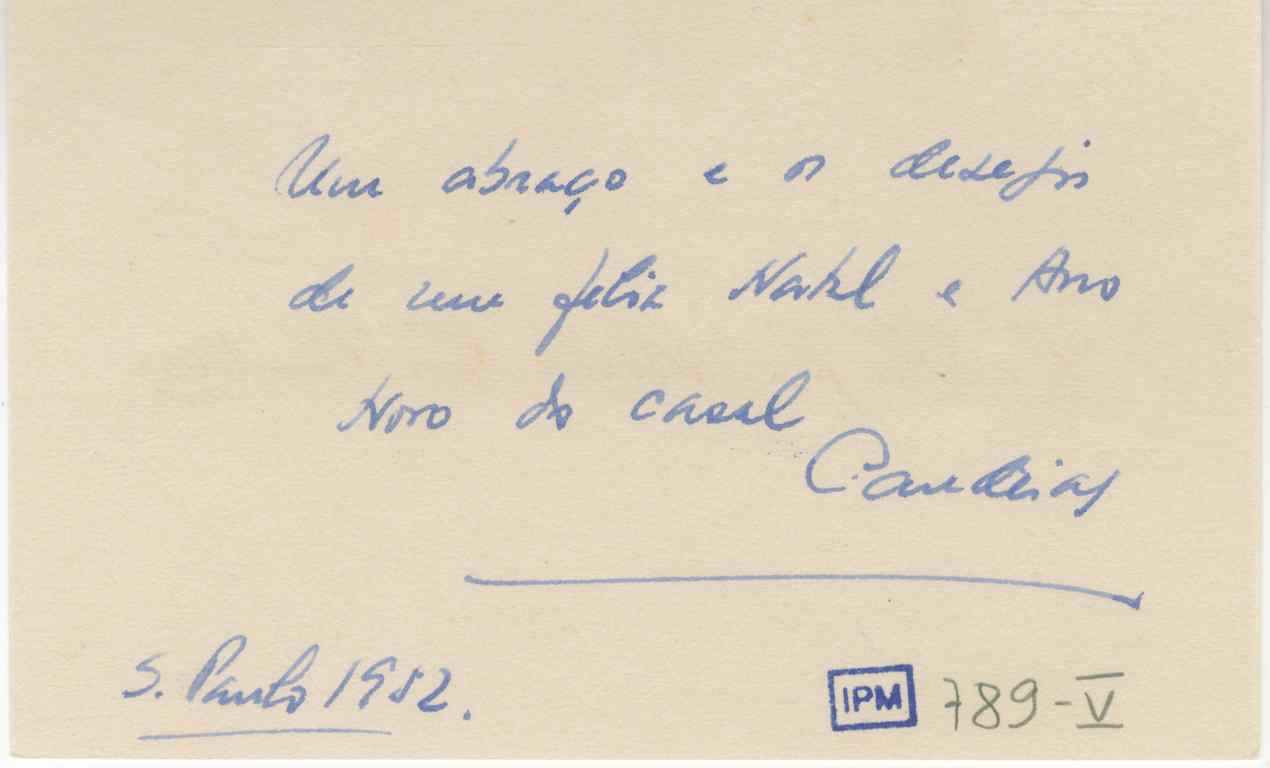 Um abraço e os desejos
de um feliz Natal e Ano
Novo do casal
Candeias
S. Paulo 1952.
IPM 789-V